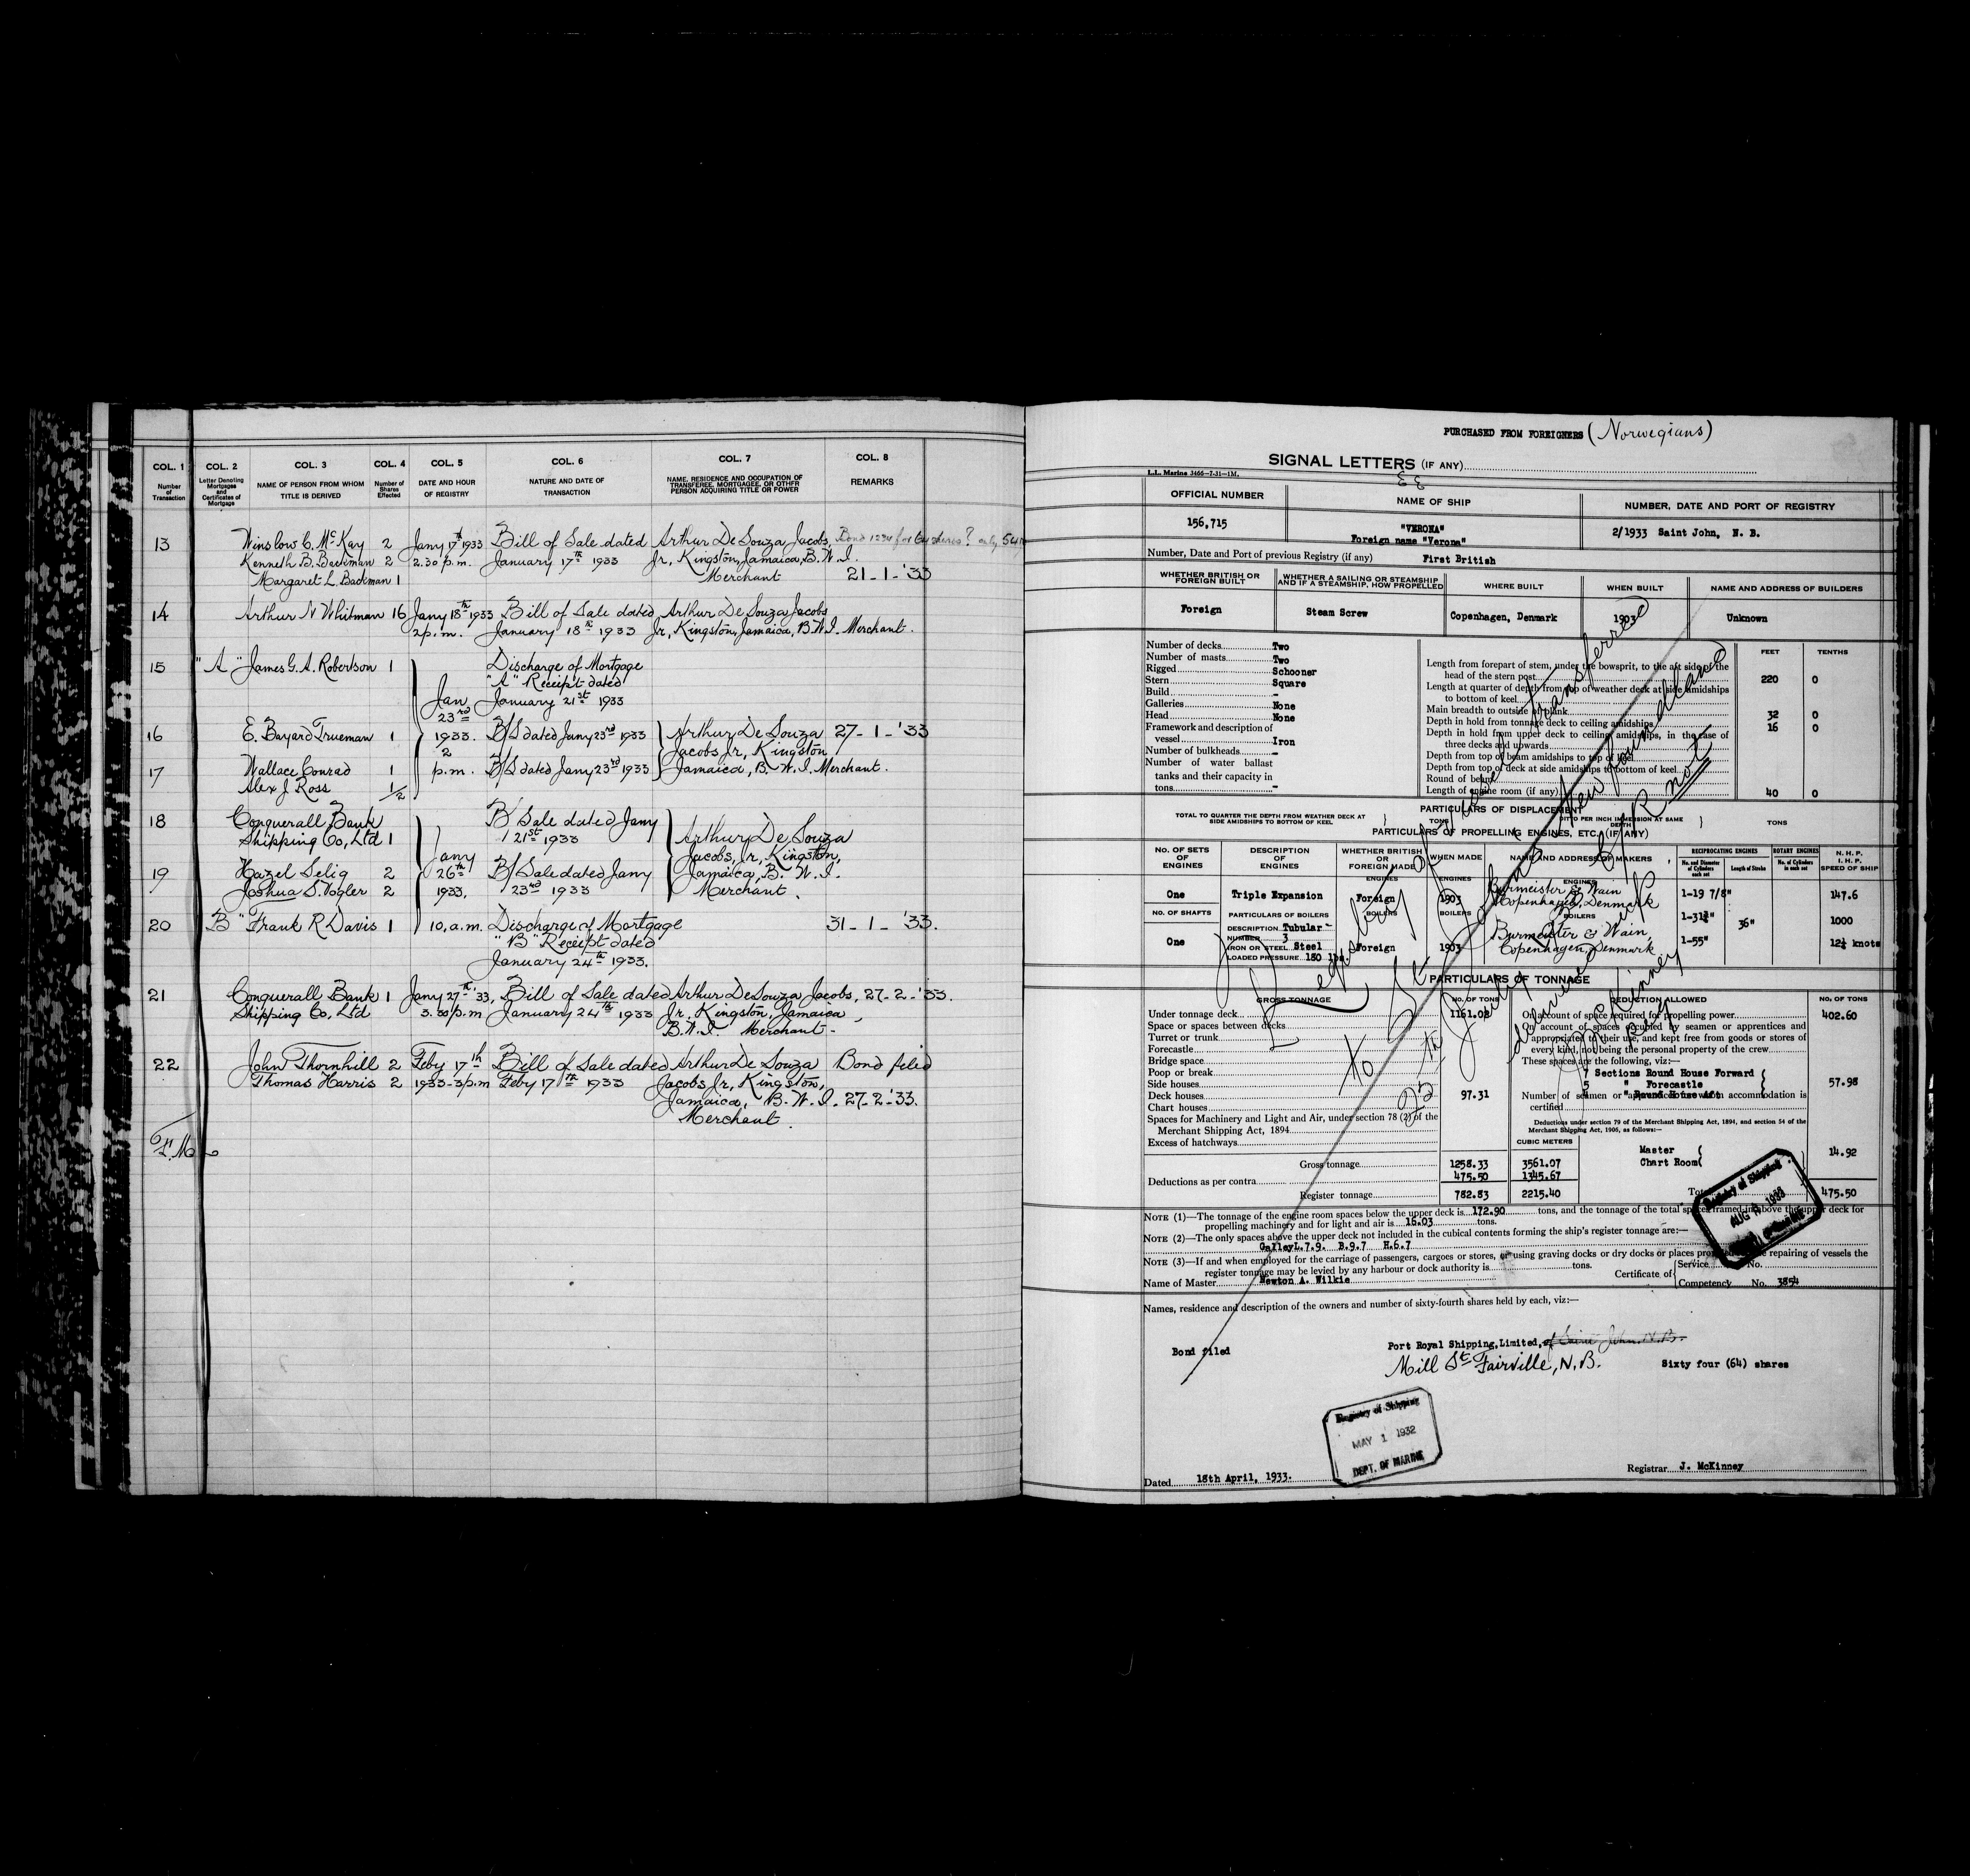 COL. 1
Number
of
Transaction
COL. 2
Letter Denoting
Mortgages
and
Certificates of
Mortgage
COL. 3
NAME OF PERSON FROM WHOM
TITLE IS DERIVED
COL. 4
Number of
Shares
Effected
COL. 5
DATE AND HOUR
OF REGISTRY
COL. 6
NATURE AND DATE OF
TRANSACTION
COL. 7
NAME, RESIDENCE AND OCCUPATION OF
TRANSFEREE, MORTGAGEE, OR OTHER
PERSON ACQUIRING TITLE OR POWER
COL. 8
REMARKS
13 Winslow C. McKay 2 Jany 17th 1933 Bill of Sale dated Arthur De Souza Jacobs, Bond 1234 for 64 shares? only 54
Kenneth B. Backman 2 2.30 p.m. January 17th 1933 Jr, Kingston, Jamaica, B.W.I.
Margaret L. Backman 1 Merchant 21-1-'33
14 Arthur N Whitman 16 Jany 18th 1933 Bill of Sale dated Arthur De Souza Jacobs
2 p.m. January 18th 1933 Jr, Kingston, Jamaica, B.W.I. Merchant.
15 "A" James G. A. Robertson 1 Discharge of Mortgage
"A" Receipt dated
Jan January 21st 1933
23rd
16 E. Bayard Trueman 1 1933. B/S dated Jany 23rd 1933 Arthur De Souza 27-1-'33
2 Jacobs Jr, Kingston
17 Wallace Conrad 1 p.m. B/S dated Jany 23rd 1933 Jamaica, B.W.I. Merchant.
Alex J Ross 1/2
18 Conquerall Bank B/Sale dated Jany
Shipping Co, Ltd 1 21st 1933 Arthur De Souza
Jany Jacobs, Jr, Kingston,
19 Hazel Selig 2 26th B/Sale dated Jany Jamaica, B.W.I.
Joshua S. Vogler 2 1933. 23rd 1933 Merchant.
20 "B" Frank R Davis 1 10, a.m. Discharge of Mortgage 31-1-'33.
"B" Receipt dated
January 24th 1933.
21 Conquerall Bank 1 Jany 27th '33, Bill of Sale dated Arthur DeSouza Jacobs, 27-2-'33.
Shipping Co, Ltd 3.30 p.m January 24th 1933 Jr, Kingston, Jamaica,
B.W.I. Merchant-
22 John Thornhill 2 Feby 17th Bill of Sale dated Arthur De Souza Bond filed
Thomas Harris 2 1933-3 p.m Feby 17th 1933 Jacobs Jr, Kingston,
Jamaica, B.W.I. 27-2-'33.
Merchant.
PURCHASED FROM FOREIGNERS (Norwegians)
SIGNAL LETTERS (IF ANY)
L.L. Marine 3466-7-31-1M.
OFFICIAL NUMBER
156,715
NAME OF SHIP
"VERONA"
Foreign name "Verona"
NUMBER, DATE AND PORT OF REGISTRY
2/1933 Saint John, N. B.
Number, Date and Port of previous Registry (if any) First British
WHETHER BRITISH OR
FOREIGN BUILT
Foreign
WHETHER A SAILING OR STEAMSHIP
AND IF A STEAMSHIP, HOW PROPELLED
Steam Screw
WHERE BUILT
Copenhagen, Denmark
WHEN BUILT
1903
NAME AND ADDRESS OF BUILDERS
Unknown
Number of decks Two
Number of masts Two
Rigged Schooner
Stern Square
Build -
Galleries None
Head None
Framework and description of
vessel Iron
Number of bulkheads -
Number of water ballast
tanks and their capacity in
tons -
FEET TENTHS
Length from forepart of stem, under the bowsprit, to the aft side of the
head of the stern post 220 0
Length at quarter of depth from top of weather deck at side amidships
to bottom of keel
Main breadth to outside of plank 32 0
Depth in hold from tonnage deck to ceiling amidships 16 0
Depth in hold from upper deck to ceiling amidships, in the case of
three decks and upwards
Depth from top of beam amidships to top of keel
Depth from top of deck at side amidships to bottom of keel
Round of beam
Length of engine room (if any) 40 0
PARTICULARS OF DISPLACEMENT
TOTAL TO QUARTER THE DEPTH FROM WEATHER DECK AT
SIDE AMIDSHIPS TO BOTTOM OF KEEL
TONS
DITTO PER INCH IMMERSION AT SAME
DEPTH
TONS
PARTICULARS OF PROPELLING ENGINES, ETC. (IF ANY)
No. OF SETS
OF
ENGINES
DESCRIPTION
OF
ENGINES
WHETHER BRITISH
OR
FOREIGN MADE
WHEN MADE
NAME AND ADDRESS OF MAKERS
RECIPROCATING ENGINES
No. and Diameter
of Cylinders
each set
Length of Stroke
ROTARY ENGINES
No. of Cylinders
in each set
N. H. P.
I. H. P.
SPEED OF SHIP
ENGINES ENGINES ENGINES
One Triple Expansion Foreign 1903 Burmeister & Wain 1-19 7/8" 147.6
Copenhagen, Denmark
No. OF SHAFTS PARTICULARS OF BOILERS BOILERS BOILERS BOILERS 1-31¾" 36" 1000
DESCRIPTION Tubular
NUMBER 3
One IRON OR STEEL Steel Foreign 1903 Burmeister & Wain, 1-55" 12½ knots
LOADED PRESSURE 180 lbs. Copenhagen, Denmark
PARTICULARS OF TONNAGE
GROSS TONNAGE No. OF TONS
Under tonnage deck 1161.02
Space or spaces between decks
Turret or trunk
Forecastle
Bridge space
Poop or break
Side houses
Deck houses 97.31
Chart houses
Spaces for Machinery and Light and Air, under section 78 (2) of the
Merchant Shipping Act, 1894
Excess of hatchways
CUBIC METERS
Gross tonnage 1258.33 3561.07
Deductions as per contra 475.50 1345.67
Register tonnage 782.83 2215.40
DEDUCTION ALLOWED No. OF TONS
On account of space required for propelling power 402.60
On account of spaces occupied by seamen or apprentices and
appropriated to their use, and kept free from goods or stores of
every kind, not being the personal property of the crew
These spaces are the following, viz:—
7 Sections Round House Forward
5 " Forecastle 57.98
" Round House Aft
Number of seamen or apprentices for whom accommodation is
certified
Deductions under section 79 of the Merchant Shipping Act, 1894, and section 54 of the
Merchant Shipping Act, 1906, as follows:—
Master
Chart Room 14.92
Total 475.50
NOTE (1)—The tonnage of the engine room spaces below the upper deck is 172.90 tons, and the tonnage of the total spaces framed in above the upper deck for
propelling machinery and for light and air is 16.03 tons.
NOTE (2)—The only spaces above the upper deck not included in the cubical contents forming the ship's register tonnage are:—
Galley L.7.9. B.9.7 H.6.7
NOTE (3)—If and when employed for the carriage of passengers, cargoes or stores, or using graving docks or dry docks or places provided for the repairing of vessels the
register tonnage may be levied by any harbour or dock authority is tons.
Name of Master Newton A. Wilkie
Certificate of
Service No.
Competency No. 3854
Names, residence and description of the owners and number of sixty-fourth shares held by each, viz:—
Bond filed
Port Royal Shipping, Limited, of Saint John, N.B.
Mill St Fairville, N.B. Sixty four (64) shares
Registry of this vessel transferred
to St. Johns Newfoundland
25th July C/R not
delivered up
J McKinney
Reg
Registry of Shipping
AUG
Registry of Shipping
MAY 1 1932
DEPT. OF MARINE
Dated 18th April, 1933.
Registrar J. McKinney